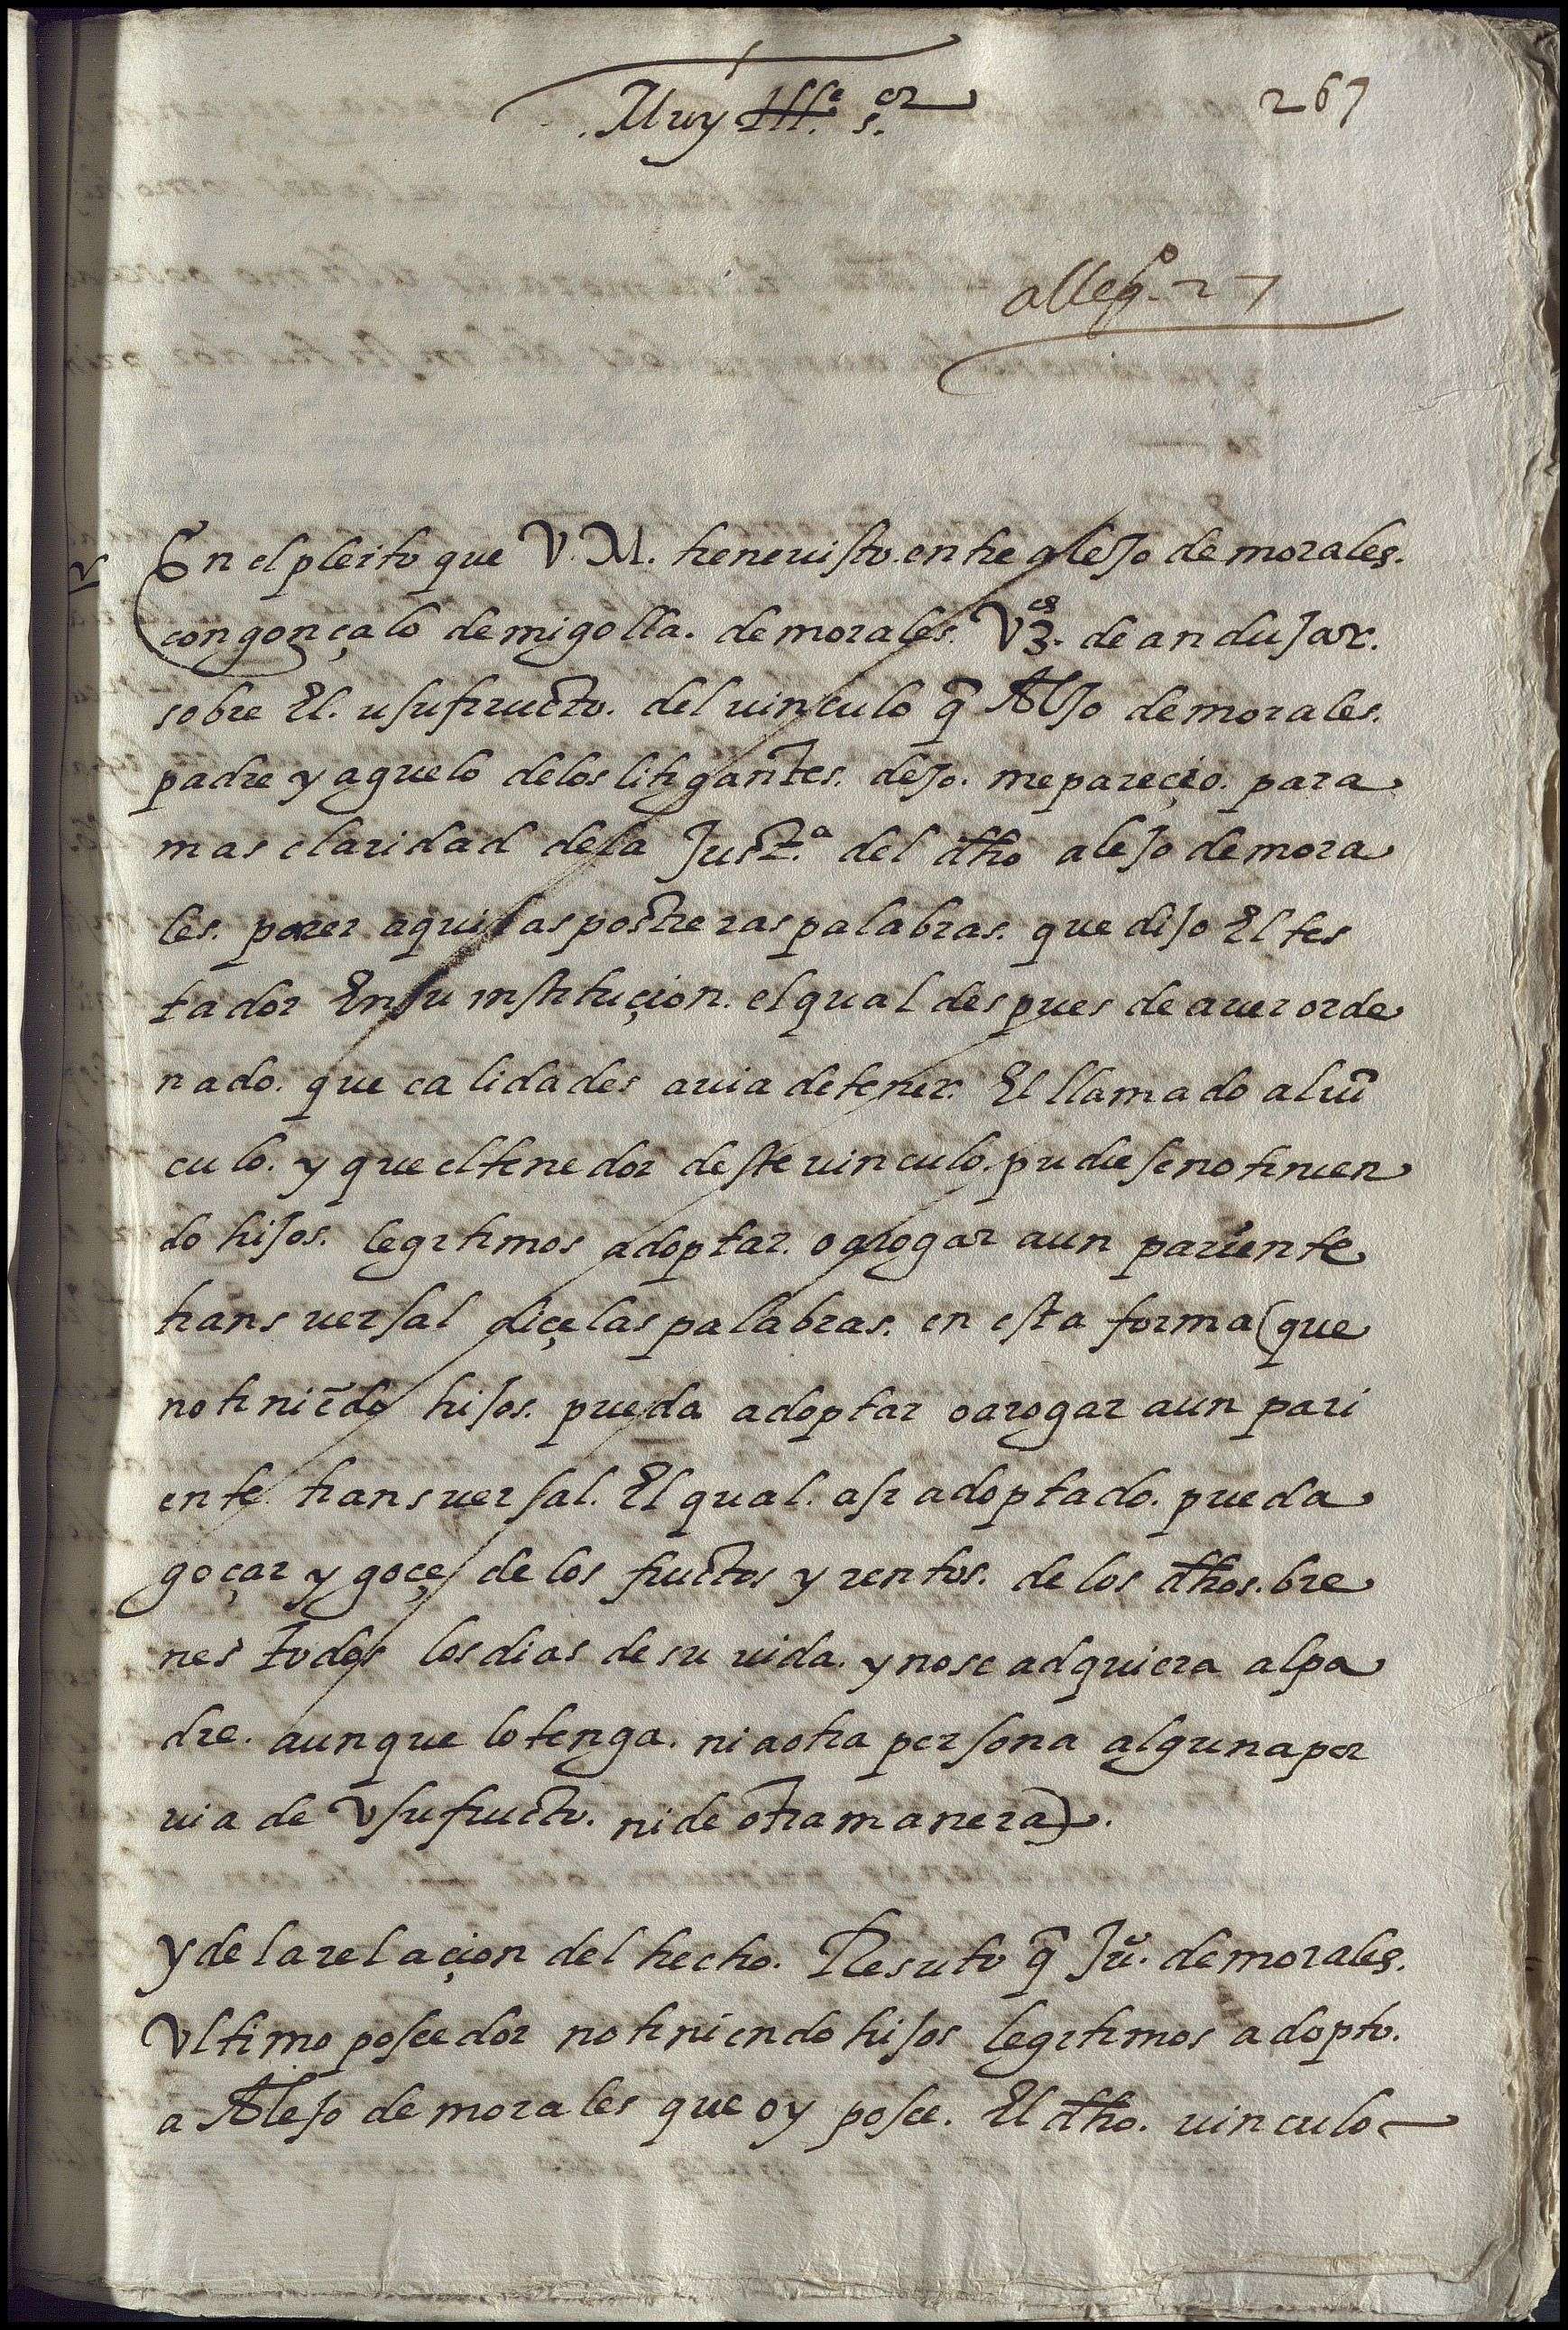 Muy Ill.e s.or
267
alleg.o 27
En el pleito que V. M. tiene uisto. entre aleJo de morales.
con gonçalo de migolla. de morales. Vz.os de anduJar.
sobre El. usufructo. del uinculo q̃ AleJo de morales.
padre y aguelo delos litigantes. deJo. me pareçio. para
mas claridad dela Just.a del dho aleJo de mora
les. poner aqui las postreras palabras. que diJo El tes
tador En su instituçion. el qual despues de auer orde
nado. que calidades auia detener. El llamado al uĩ
culo. y que el tenedor deste uinculo. pudiese no tinien
do hiJos. legitimos adoptar. o arogar aun pariente
transuersal diçe las palabras. en esta forma (que
no tiniẽdo hiJos. pueda adoptar o arogar aun pari
ente. transuersal. El qual. asi adoptado. pueda
goçar y goçe de los fructos y rentos. de los dhos. bie
nes todos los dias de su uida. y nose adquiera al pa
dre. aunque lo tenga. ni aotra persona alguna por
uia de Vsufructo. ni de otra manera).
y de la relaçion del hecho. Resuto q̃ Ju.o de morales.
Vltimo poseedor no tiniendo hiJos legitimos adopto.
a AleJo de morales que oy posee. El dho. uinculo